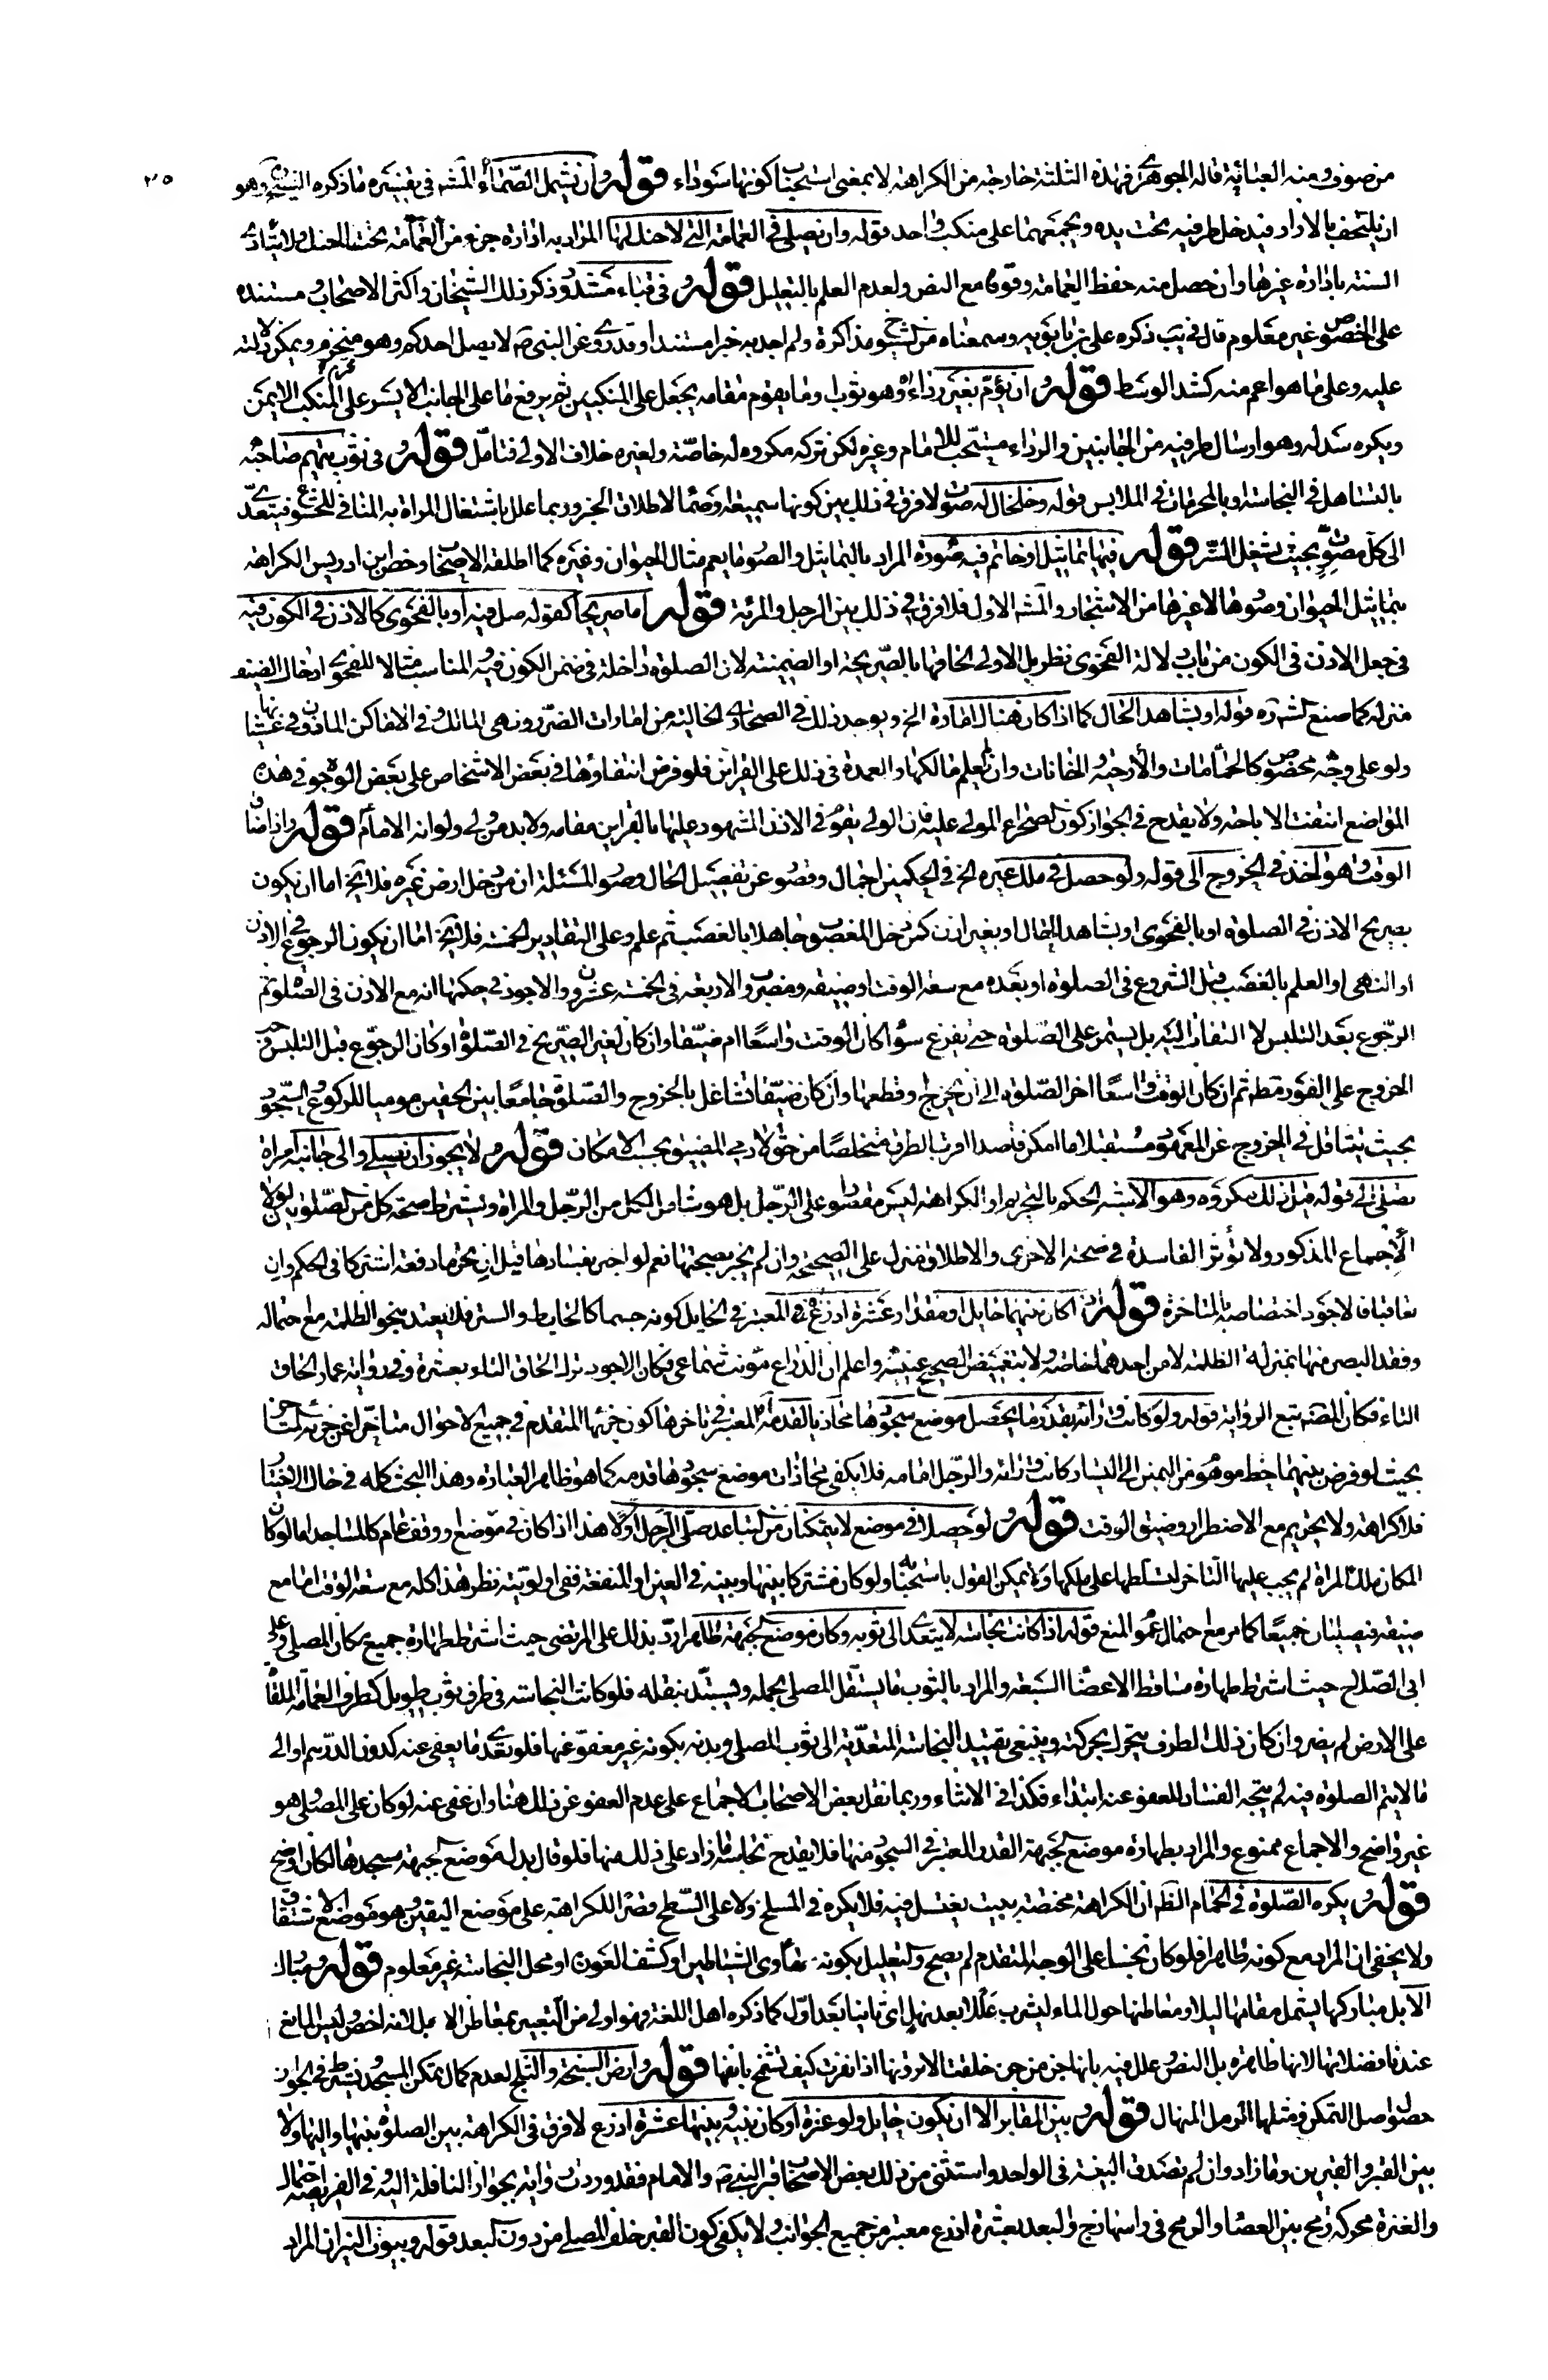 ٢٥
من صوف ومنه العبائية قاله الجوهري فهذه الثلثة خارجة من الكراهة لا بمعنى استحباب كونها سوداء قوله وان يشتمل الصماء المشه في تفسيره ما ذكره الشيخ وهو
ان يلتحف بالازار فيدخل طرفيه تحت يده ويجمعهما على منكب واحد قوله وان يصلي في العمامة التي لا حنك لها المراد به ادارة جزء من العمامة تحت الحنك ولا يتأدى
السنة بادارة غيرها وان حصل منه حفظ العمامة وقوفا مع النص ولعدم العلم بالتعليل قوله في قباء مشدود ذكر ذلك الشيخان واكثر الاصحاب ومستنده
على الخصوص غير معلوم قال في يب ذكره علي بن بابويه وسمعناه من الشيوخ مذاكرة ولم اجد به خبرا مستندا وقد روي عن النبي ص لا يصل احدكم وهو محزم ويمكن دلالته
عليه وعلى ما هو اعم منه كشد الوسط قوله ان يؤم بغير رداء وهو ثوب او ما يقوم مقامه يجعل على المنكبين ثم يرفع ما على الجانب الايسر على المنكب الايمن
ويكره سدله وهو ارسال طرفيه من الجانبين والرداء مستحب للامام وغيره لكن تركه مكروه له خاصة ولغيره خلاف الاولى فتامل قوله في ثوب يتهم صاحبه
بالتساهل في النجاسة او بالمحرمات في الملابس قوله وخلخال له صوت لا فرق في ذلك بين كونها سميعة وصما لاطلاق الخبر وربما علل باشتغال المراة به المنافي للخشوع فيتعدى
الى كل مصوت بحيث يشغل السر قوله فيها تماثيل او خاتم فيه صورة المراد بالتماثيل والصور ما يعم مثال الحيوان وغيره كما اطلقه الاصحاب وخص ابن ادريس الكراهة
بتماثيل الحيوان وصورها لا غيرها من الاشجار والمشه الاول فلا فرق في ذلك بين الرجل والمرئة قوله اما صريحا كقوله صل فيه او بالفحوى كالاذن في الكون فيه
في جعل الاذن في الكون من باب دلالة الفحوى نظر بل الاولى الحاقها بالصريحة او الضمنية لان الصلوة داخلة في ضمن الكون فيه والمناسب مثالا للفحوى ادخال الضيف
منزله كما صنع الشه ره قوله او بشاهد الحال كما اذا كان هناك امارة الخ ويوجد ذلك في الصحاري الخالية من امارات الضرر ونهي المالك وفي الاماكن الماذون في غشيانها
ولو على وجه مخصوص كالحمامات والارحية والخانات وان لم يعلم مالكها والعمدة في ذلك على القراين فلو فرض انتفاؤها في بعض الاشخاص على بعض الوجوه في هذه
المواضع انتفت الاباحة ولا يقدح في الجواز كون الصحراء لمولى عليه فان الولي يقوم في الاذن المشهود عليها بالقراين مقامه ولا بد من ولي ولو انه الامام قوله واذا ضاق
الوقت وهو اخذ في الخروج الى قوله ولو حصل في ملك غيره الخ في الحكمين اجمال وقصور عن تفصيل الحال وصور المسئلة ان من دخل ارض غيره فلا يخ اما ان يكون
بصريح الاذن في الصلوة او بالفحوى او بشاهد الحال او بغير اذن كمن دخل المغصوب جاهلا بالغصب ثم علم وعلى التقادير الخمسة فلا يخ اما ان يكون الرجوع في الاذن
او النهى او العلم بالغصب قبل الشروع في الصلوة او بعده مع سعة الوقت او ضيقه ومضروب الاربعة في الخمسة عشرون والاجود في حكمها انه مع الاذن في الصلوة ثم
الرجوع بعد التلبس لا التفات اليه بل يستمر على الصلوة حتى يفرغ سواء كان الوقت واسعا ام ضيقا وان كان لغير الصريح في الصلوة او كان الرجوع قبل التلبس وجب
الخروج على الفور مطه ثم ان كان الوقت واسعا اخر الصلوة الى ان يخرج او قطعها وان كان ضيقا تشاغل بالخروج والصلوة جامعا بين الحقين موميا للركوع والسجود
بحيث يتثاقل في الخروج عن المعهود مستقبلا ما امكن قاصدا اقرب الطرق متخلصا من حق الادمي المضيق بحسب الامكان قوله لا يجوز ان يصلي والى جانبه امراة
تصلي الى قوله قيل ذلك مكروه وهو الاشبه الحكم بالتحريم او الكراهة ليس مقصورا على الرجل بل هو شامل لكل من الرجل والمراة ويشترط صحة كل من الصلوتين لولا
الاجماع المذكور ولا تؤثر الفاسدة في صحة الاخرى والاطلاق منزل على الصحيحة وان لم يخبر بصحتها نعم لو اخبر بفسادها قيل ان تحرما دفعة اشتركا في الحكم وان
تعاقبا فالاجود اختصاصه بالمتاخرة قوله اذا كان بينهما حايل او مقدار عشرة اذرع المعتبر في الحايل كونه جسما كالحايط والستر فلا يعتد بنحو الظلمة مع احتماله
وفقد البصر منهما بمنزلة الظلمة لا من احدهما خاصة ولا بتغميض الصحيح عينيه واعلم ان الذراع مؤنث سماعي فكان الاجود ترك الحاق التاء بعشرة وفي رواية عمار الحاق
التاء فكان المصنه تبع الرواية قوله ولو كانت وراءه بقدر ما يحصل موضع سجودها محاذيا لقدمه المعتبر في تاخرها كون جزئها المتقدم في جميع الاحوال متاخرا عن جزئه
بحيث لو فرض بينهما خط موهوم من اليمين الى اليسار كانت وراءه والرجل امامه فلا يكفي محاذات موضع سجودها قدمه كما هو ظاهر العبارة وهذا البحث كله في حال الاختيار
فلا كراهة ولا تحريم مع الاضطرار وضيق الوقت قوله لو حصلا في موضع لا يتمكنان من التباعد صلى الرجل اولا هذا اذا كان في موضع او وقف عام كالمساجد اما لو كان
المكان ملك المراة لم يجب عليها التاخر لتسلطها على ملكها ويمكن القول باستحبابه ولو كان مشتركا بينها وبينه في العين او المنفعة ففي اولويته نظر هذا كله مع سعة الوقت اما مع
ضيقه فيصليان جميعا كما مر مع احتمال عموم المنع قوله اذا كانت نجاسته لا يتعدى الى ثوبه وكان موضع الجبهة طاهرا رد بذلك على المرتضى حيث اشترط طهارة جميع مكان المصلي وعلى
ابي الصلاح حيث اشترط طهارة مساقط الاعضاء السبعة والمراد بالثوب ما يستقل المصلي بحمله ويستبد بنقله فلو كانت النجاسة في طرف ثوب طويل كطرف العمامة الملقاة
على الارض لم يضر وان كان ذلك الطرف يتحرك بحركته وينبغي تقييد النجاسة المتعدية الى ثوب المصلي وبدنه بكونه غير معفو عنها فلو تعدى ما يعفى عنه كدون الدرهم او الى
ما لا يتم الصلوة فيه لم يتجه الفساد للعفو عنه ابتداء فكذا في الاثناء وربما نقل بعض الاصحاب الاجماع على عدم العفو عن ذلك هنا وان عفى عنه لو كان على المصلي وهو
غير واضح والاجماع ممنوع والمراد بطهارة موضع الجبهة القدر المعتبر في السجود منها فلا يقدح نجاسة ما زاد على ذلك منها فلو قال بدله موضع الجبهة مسجدها لكان اوضح
قوله يكره الصلوة في الحمام الظه ان الكراهة مختصة ببيت يغتسل فيه فلا يكره في المسلخ ولا على السطح قصرا للكراهة على موضع اليقين وهو موضع الاشتقاق
ولا يخفى ان المراد مع كونه طاهرا فلو كان نجسا على الوجه المتقدم لم يصح والتعليل بكونه ماوى الشياطين او كشف العورة او محل النجاسة غير معلوم قوله ومبارك
الابل مباركها يشمل مقامها ليلا ومعاطنها حول الماء ليشرب عللا بعد نهل اى ثانيا بعد اول كما ذكره اهل اللغة وهو اولى من التعبير بمعاطن الابل لانه اخص وليس المانع
عندنا فضلاتها لانها طاهرة بل النص علل فيه بانها جن من جن خلقت الا ترونها اذا نفرت كيف تشمخ بانفها قوله وارض السبخة والثلج لعدم كمال تمكن المسجد ويشترط في الجواز
حصول اصل التمكن ومثلها الرمل المنهال قوله وبين المقابر الا ان يكون حايل ولو عنزة او كان بينه وبينها عشرة اذرع لا فرق في الكراهة بين الصلوة بينها واليها ولا
بين القبر والقبرين وما زاد وان لم تصدق البينية في الواحد واستثنى من ذلك بعض الاصحاب قبر النبي ص والامام فقد وردت رواية بجواز النافلة اليه وفي الفريضة احتمال
والعنزة محركة رمح بين العصا والرمح في راسها زج والبعد بعشرة اذرع معتبر من جميع الجوانب ولا يكفي كون القبر خلف المصلي من دون البعد قوله وبيوت النيران المراد